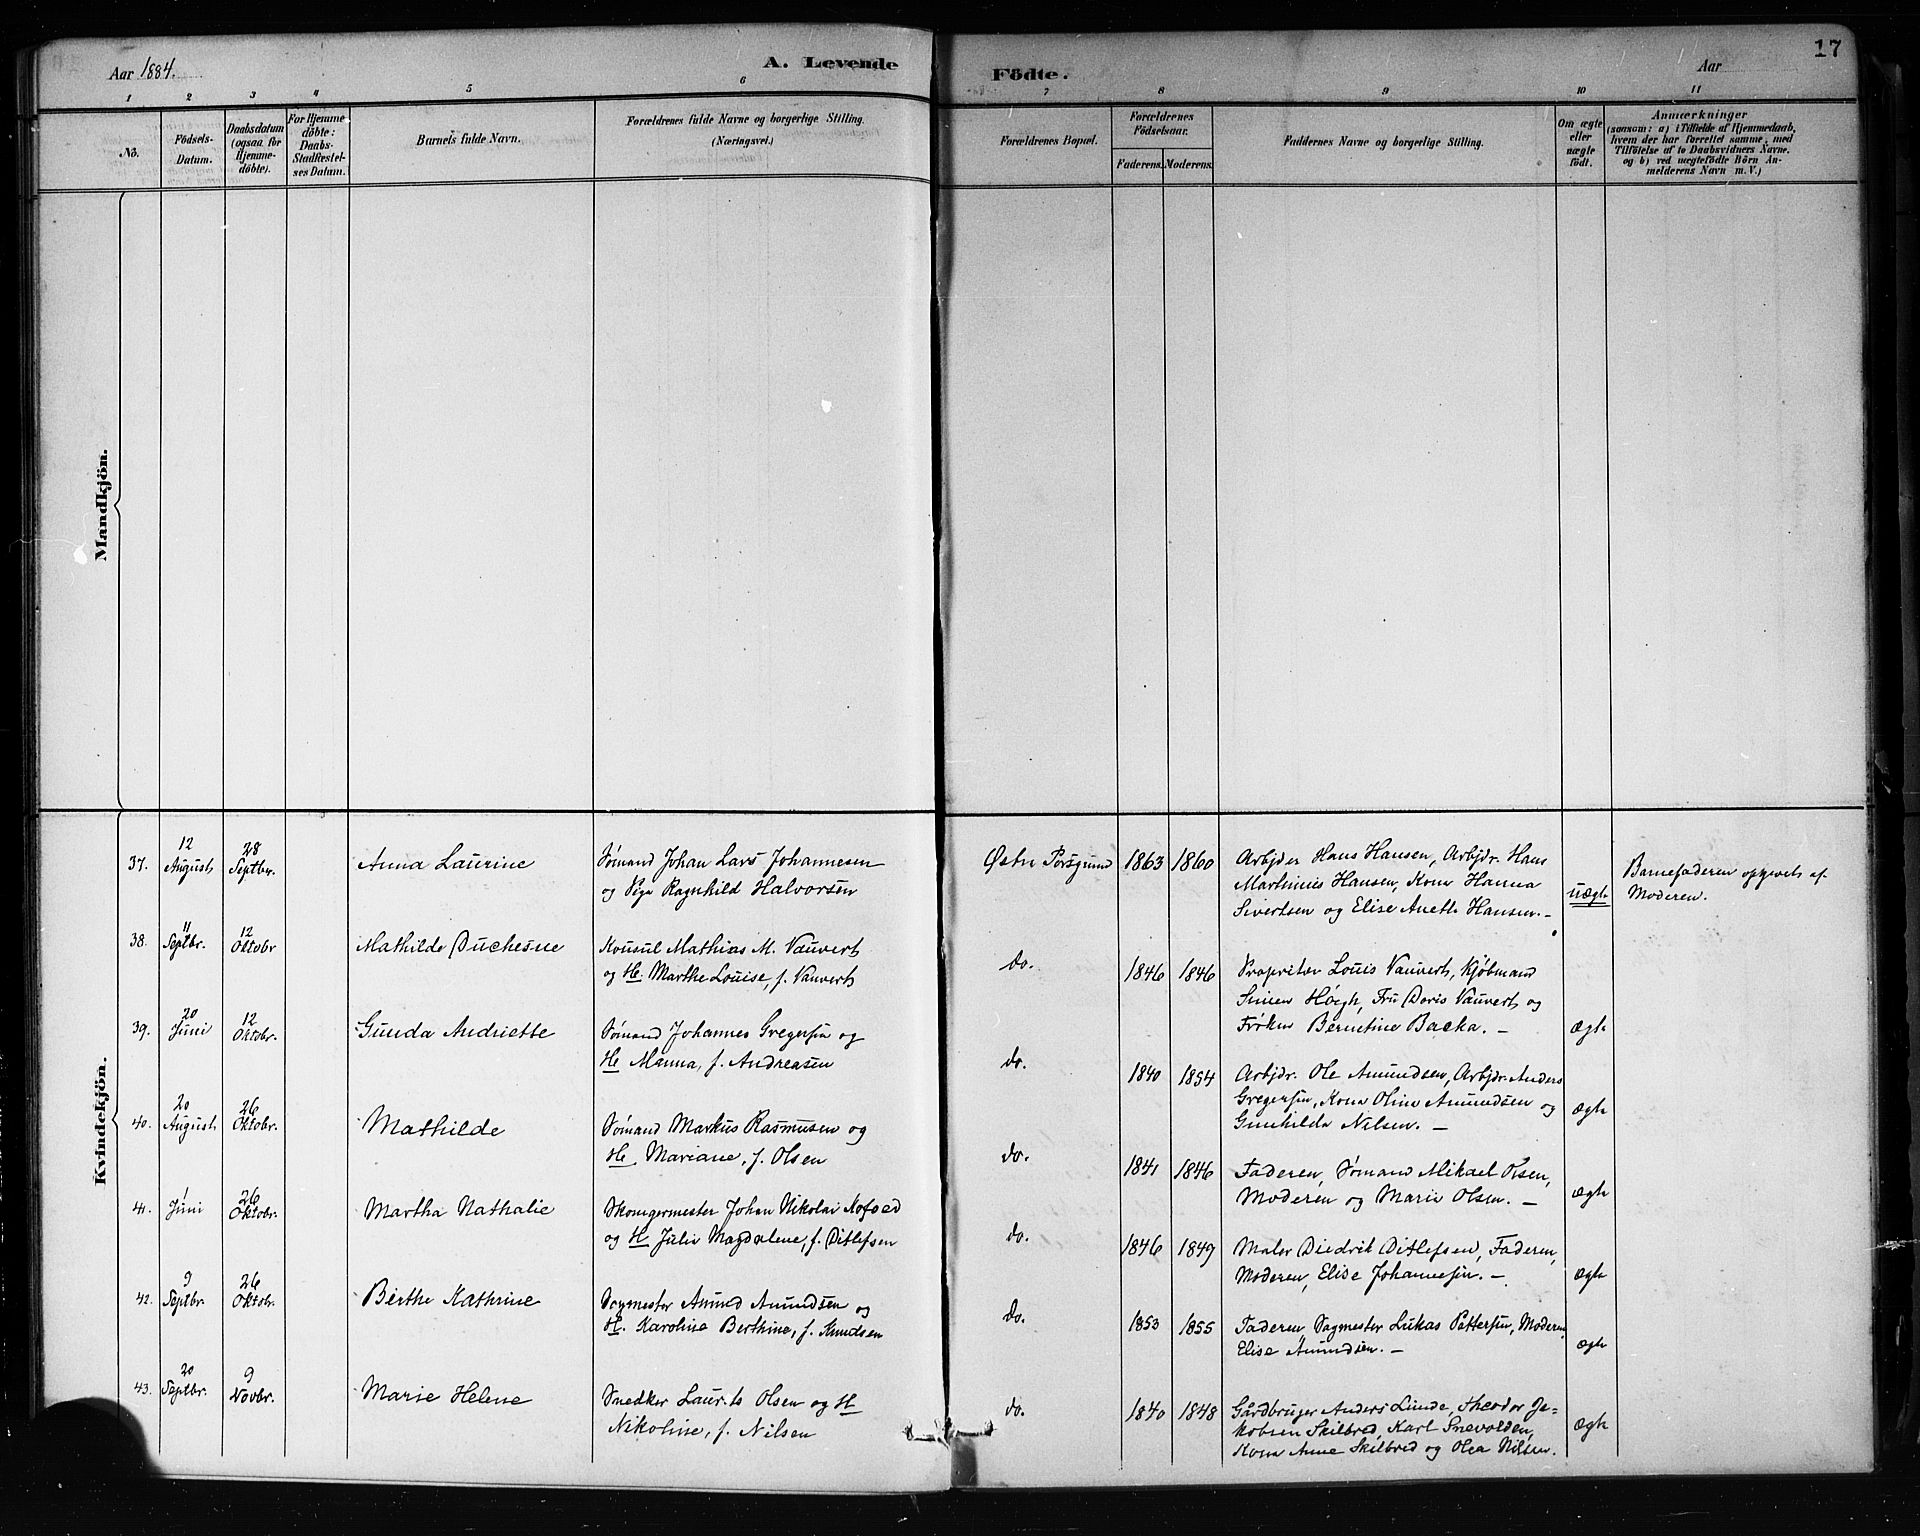 Aar 1884.
A. Levende
Födte.
Aar
17
1 2 3 4 5 6 7 8 9 10 11
No.
Födsels-
Datum.
Daabsdatum
(ogsaa for
Hjemme-
döbte).
For Hjemme
döbte:
Daabs-
Stadfæstel-
ses Datum.
Barnets fulde Navn.
Forældrenes fulde Navne og borgerlige Stilling.
(Næringsvei.)
Forældrenes Bopæl.
Forældrenes
Födselsaar.
Faderens. Moderens.
Faddernes Navne og borgerlige Stilling.
Om ægte
eller
uægte
födt.
Anmærkninger
(saasom: a) i Tilfælde af Hjemmedaab,
hvem der har forrettet samme, med
Tilföielse af to Daabsvidners Navne.
og b) ved uægtefödte Börn An-
melderens Navn m. V.)
Mandkjön.
Kvindekjön.
37. 12 August 28 Septbr. Anna Laurine
Sømand Johan Lars Johannesen
og Pige Ragnhild Halvorsen
Østre Porsgrund 1863 1860
Arbjder Hans Hansen, Arbjdr. Hans
Martinius Hansen, Kona Hanna
Sivertsen og Elise Aneth Hansen. –
uægte
Barnefaderen opgivet af
Moderen.
38. 11 Septbr. 12 Oktobr Mathilde Duchesne
Konsul Mathias M. Vauvert
og H. Marthe Louise, f. Vauvert
do. 1846 1846
Propritær Louis Vauvert, Kjøbmand
Simen Høegh, Fru Doris Vauvert og
Frøken Berntine Backa. –
ægte
39. 20 Juni 12 Oktobr. Gunda Andriette
Sømand Johannes Gregersen og
H. Manna, f. Andreasen
do. 1840 1854
Arbjdr. Ole Amundsen, Arbjdr. Anders
Gregersen, Kona Oline Amundsen og
Gunhilda Nilsen. –
ægte
40. 20 August 26 Oktobr. Mathilde
Sømand Markus Rasmusen og
H. Mariane, f. Olsen
do. 1841 1846
Faderen, Sømand Mikael Olsen,
Moderen og Marie Olsen. –
ægte
41. 1 Juni 26 Oktobr. Martha Nathalie
Skomgermester Johan Nikolai Kofoed
og H Julie Magdalene, f. Ditlefsen
do. 1846 1849
Maler Diedrik Ditlefsen, Faderen,
Moderen, Elise Johannesen. –
ægte
42. 9 Septbr. 26 Oktobr. Berthe Kathrine
Sagmester Amund Amundsen og
H. Karoline Berthine, f. Knudsen
do. 1853 1855
Faderen, Sagmester Lukas Pettersen, Moderen,
Elise Amundsen. –
ægte
43. 20 Septbr. 9 Novbr. Marie Helene
Snedker Laurits Olsen og H
Nikoline, f. Nilsen
do. 1840 1848
Gårdbruger Anders Lunde, Theodor Ja-
kobsen Skilbred, Karl Snevolden,
Kona Anne Skilbred og Olea Nilsen.
ægte